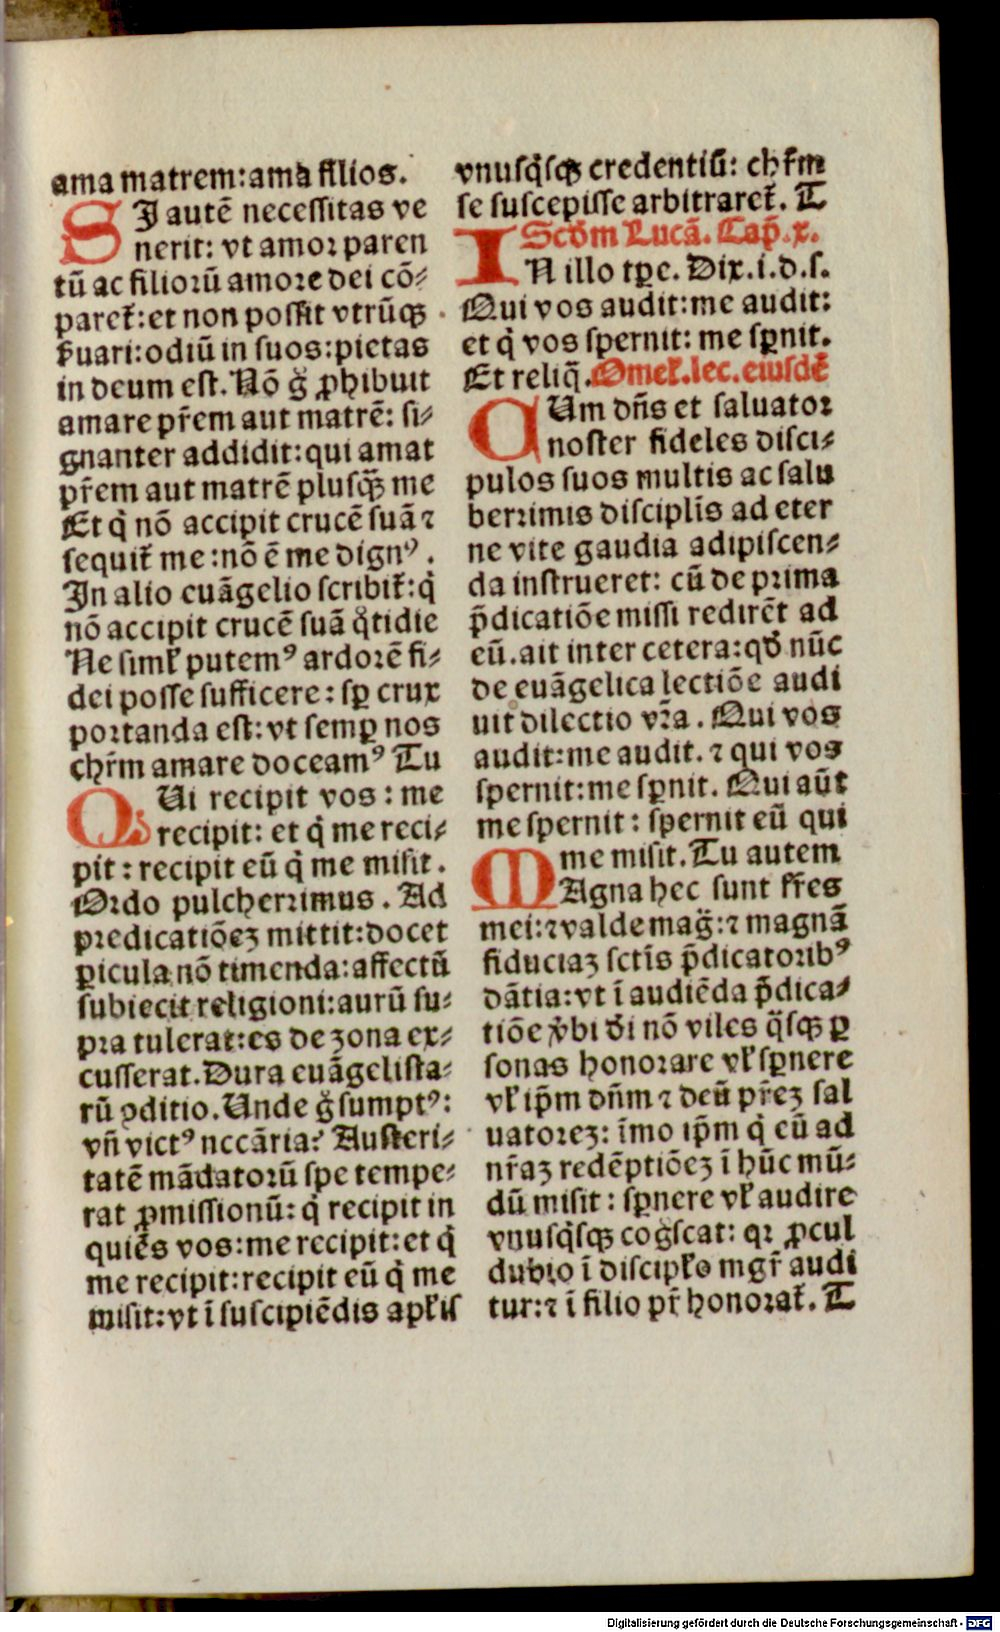 ama matrem:ama filios.
SJ autē neceſſitas ve
nerit: vt amor paren
tū ac filiorū amore dei cō⸗
paret̄:et non poſſit vtrūqꝫ
ẜuari:odiū in ſuos:pietas
in deum eſt. Nō g̊ ꝓhibuit
amare pr̄em aut matrē: ſi⸗
gnanter addidit:qui amat
pr̄em aut matrē pluſqꝫ̄ me
Et qͥ nō accipit crucē ſuā ⁊
ſequit̄ me:nō ē me dignꝰ.
Jn alio euāgelio ſcribit̄:qͥ
nō accipit crucē ſuā qͦtidie
Ne ſiml̄ putemꝰ ardorē fi⸗
dei poſſe ſufficere: ſꝑ crux
portanda eſt:vt ſemꝑ nos
chr̄m amare doceamꝰ Tu
QUi recipit vos: me
recipit: et qͥ me reci⸗
pit: recipit eū qͥ me miſit.
Ordo pulcherrimus. Ad
predicatiōeꝫ mittit:docet
ꝑicula nō timenda:affectū
ſubiecit religioni:aurū ſu⸗
pra tulerat:es de zona ex⸗
cuſſerat. Dura euāgeliſta⸗
rū ꝯditio. Unde g̊ ſumptꝰ:
vn̄ victꝰ nccāria? Auſteri⸗
tatē mādatorū ſpe tempe⸗
rat ꝓmiſſionū: qͥ recipit in
quiēs vos:me recipit:et qͥ
me recipit:recipit eū qͥ me
miſit:vt ī ſuſcipiēdis apl̄is
vnuſqͥſqꝫ credentiū: chr̄m
ſe ſuſcepiſſe arbitraret̄. T
Scd̄m Lucā. Cap̄. x.
IN illo tꝑe. Dix. i. d. ſ.
Qui vos audit:me audit:
et qͥ vos ſpernit: me ſꝑnit.
Et reliq̄. Omel̄. lec. eiuſdē
CUm dn̄s et ſaluator
noſter fideles diſci⸗
pulos ſuos multis ac ſalu
berrimis diſciplīs ad eter
ne vite gaudia adipiſcen⸗
da inſtrueret: cū de prima
p̄dicatiōe miſſi redirēt ad
eū. ait inter cetera:qd̄ nūc
de euāgelica lectiōe audi
uit dilectio vr̄a. Qui vos
audit:me audit. ⁊ qui vos
ſpernit:me ſꝑnit. Qui aūt
me ſpernit: ſpernit eū qui
me miſit. Tu autem
MAgna hec ſunt fr̄es
mei:⁊ valde mag̅:⁊ magnā
fiduciaꝫ ſctīs p̄dicatoribꝰ
dātia:vt ī audiēda p̄dica⸗
tiōe v̄bi d̄i nō viles qͥſqꝫ ꝑ
ſonas honorare vl̄ ſꝑnere
vl̄ ip̄m dn̄m ⁊ deū pr̄eꝫ ſal
uatoreꝫ: īmo ip̄m qͥ eū ad
nr̄aꝫ redēptiōeꝫ ī hūc mū⸗
dū miſit: ſꝑnere vl̄ audire
vnuſqͥſqꝫ cog̊ſcat: qꝛ ꝓcul
dubio ī diſcipl̄o mgr̄ audi
tur:⁊ ī filio pr̄ honorat̄. T
Digitalisierung gefördert durch die Deutsche Forschungsgemeinschaft - DFG